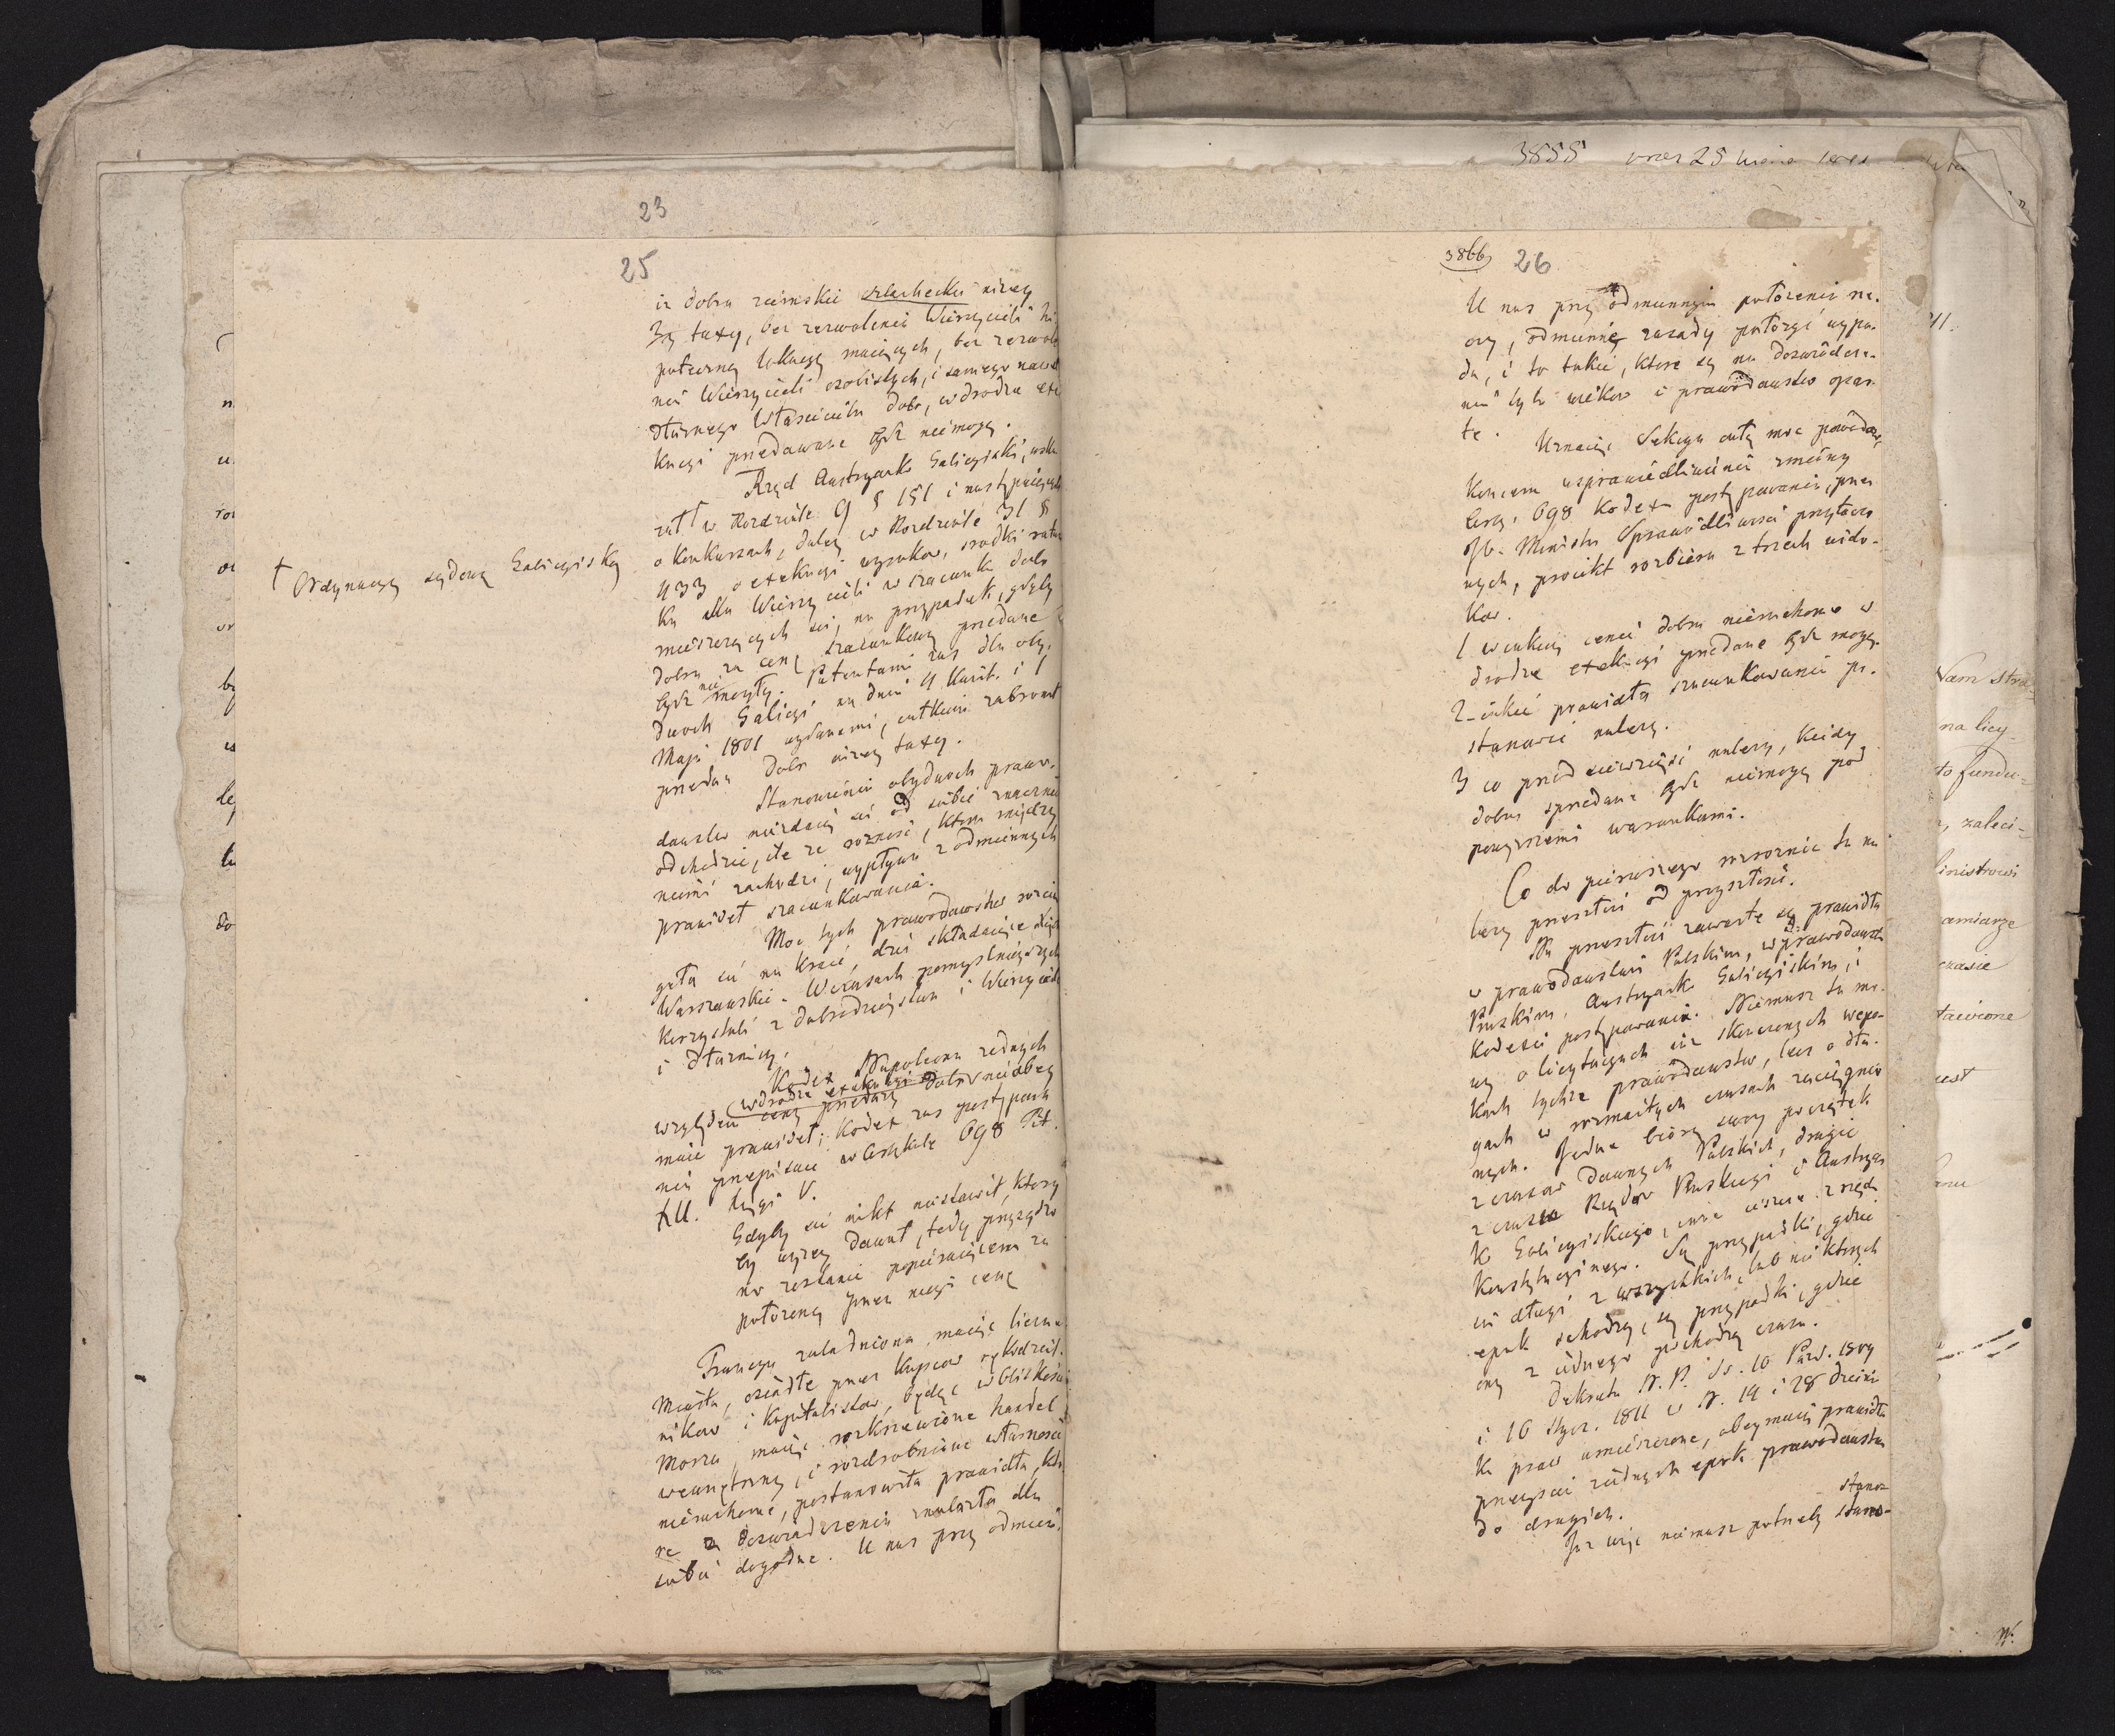 23
25
iż dobra ziemskie szlacheckie niżey
3/4 taxy, bez zezwolenia Wierzycieli hi
poteczną lokacyą maiących, bez zezwole
nia Wierzycieli osobistych, i samego nawet
dłużnego Właściciela dobr, w drodze exe
kucyi przedawane bydź niemogą.
Rząd Austryacko Galicyiski, wska
zał † w Rozdziale 9 § 151 i następuiących
o konkursach, daley w Rozdziale 31 §
433 o exekucyi wyroków, srodki ratun
ku dla Wierzycieli w szacunku dobr
mieszczących się, na przypadek, gdyby
dobra za cenę szacunkową przedane
bydź nie mogły. Patentami zas dla oby-
dwoch Galicyi na dniu 4 Kwiet. i 1
Maja 1801 wydanemi, całkiem zabronił
przedaż dobr niżey taxy.
† Ordynacyą sądową Galicyiską
Stanowienia obydwoch prawo-
dawstw niezdaią się od siebie znacznie
odchodzić, ile że rożność, ktora między
niemi zachodzi, wypływa z odmiennych
prawideł szacunkowania.
Moc tych prawodawstw rozcią
gała się na kraie, dziś składaiące Xięstwo
Warszawskie. W czasach pomyslnieyszych
korzystali z dobrodzieystwa i Wierzyciele
i dłużnicy.
Kodex Napoleona żadnych
w drodze exekucyi
względem ceny przedaży dobr nieobey
muie prawideł; Kodex zas postępowa
nia przepisuie w Artykule 698 Tit.
XII. Xięgi V.
Gdyby się nikt niestawił, ktory
by wyżey dawał, tedy przysądzo
no zostanie popieraiącemu za
położoną przez niego cenę
Francya zaludniona, maiąc liczne
Miasta, osiadłe przez kupcow rękodziel-
nikow i kapitalistow, będąc w bliskości
Morza, maiąc rozkrzewione handel
wewnętrzny, i rozdrobnione własności
nieruchome, postanowiła prawidła, kto
re z doswiadczenia znalazła dla
siebie dogodne. U nas przy odmien-
3866
26
U nas przy odmiennym położeniu rze-
czy, odmienne zasady przyiąć wypa-
da, i to takie, ktore są na doswiadcze-
niu tylu wiekow i prawodawstw opar-
te.
Uznaiąc Sekcya całą moc powodow,
koncem usprawiedliwienia zmiany
Arty. 698 Kodexu postępowania, przez
JW. Ministra Sprawiedliwosci przytoczo
nych, proiekt rozbiera z trzech wido-
kow.
1 w iakiey cenie dobra nieruchome w
drodze exekucyi przedane bydź mogą.
2 iakie prawidła szacunkowania po-
stanowić należy.
3 co przedsiewziąść należy, kiedy
dobra sprzedane bydź niemogą pod
powyższemi warunkami.
Co do pierwszego rozrożnić tu na
leży przeszłość od przyszłości.
W przeszłości zawarte są prawidła
w prawodawstwie Polskim, w prawodawstwie
Pruskim, Austryacko Galicyiskim, i
Kodexie postępowania. Niemasz tu mo-
wy o licytacyach iuż skonczonych w epo-
kach tychże prawodawstw, lecz o dłu-
gach w rozmaitych czasach zaciągnio
nych. Jedne biorą swoy początek
z czasow dawnych Polskich, drugie
z czasow Rządow Pruskiego i Austryac
ko Galicyiskiego, inne ieszcze z rządu
Konstytucyinego. Są przypadki, gdzie
się długi z wszystkich, lub niektorych
epok schodzą, są przypadki, gdzie
one z iednego pochodzą czasu.
Dekreta N. P. do. 10 Paźd. 1809
i 16 Stycz. 1811 w N. 14 i 28 Dzienni
ka praw umieszczone, obeymuią prawidła
przeyścia iednych epok prawodawstwa
do drugich.
Już więc niemasz potrzeby stano-
stano-
3855 przez 25
Vam stra-
na licy-
to fundu-
zaleci-
linistrowi
amiarze
czasie
tawione